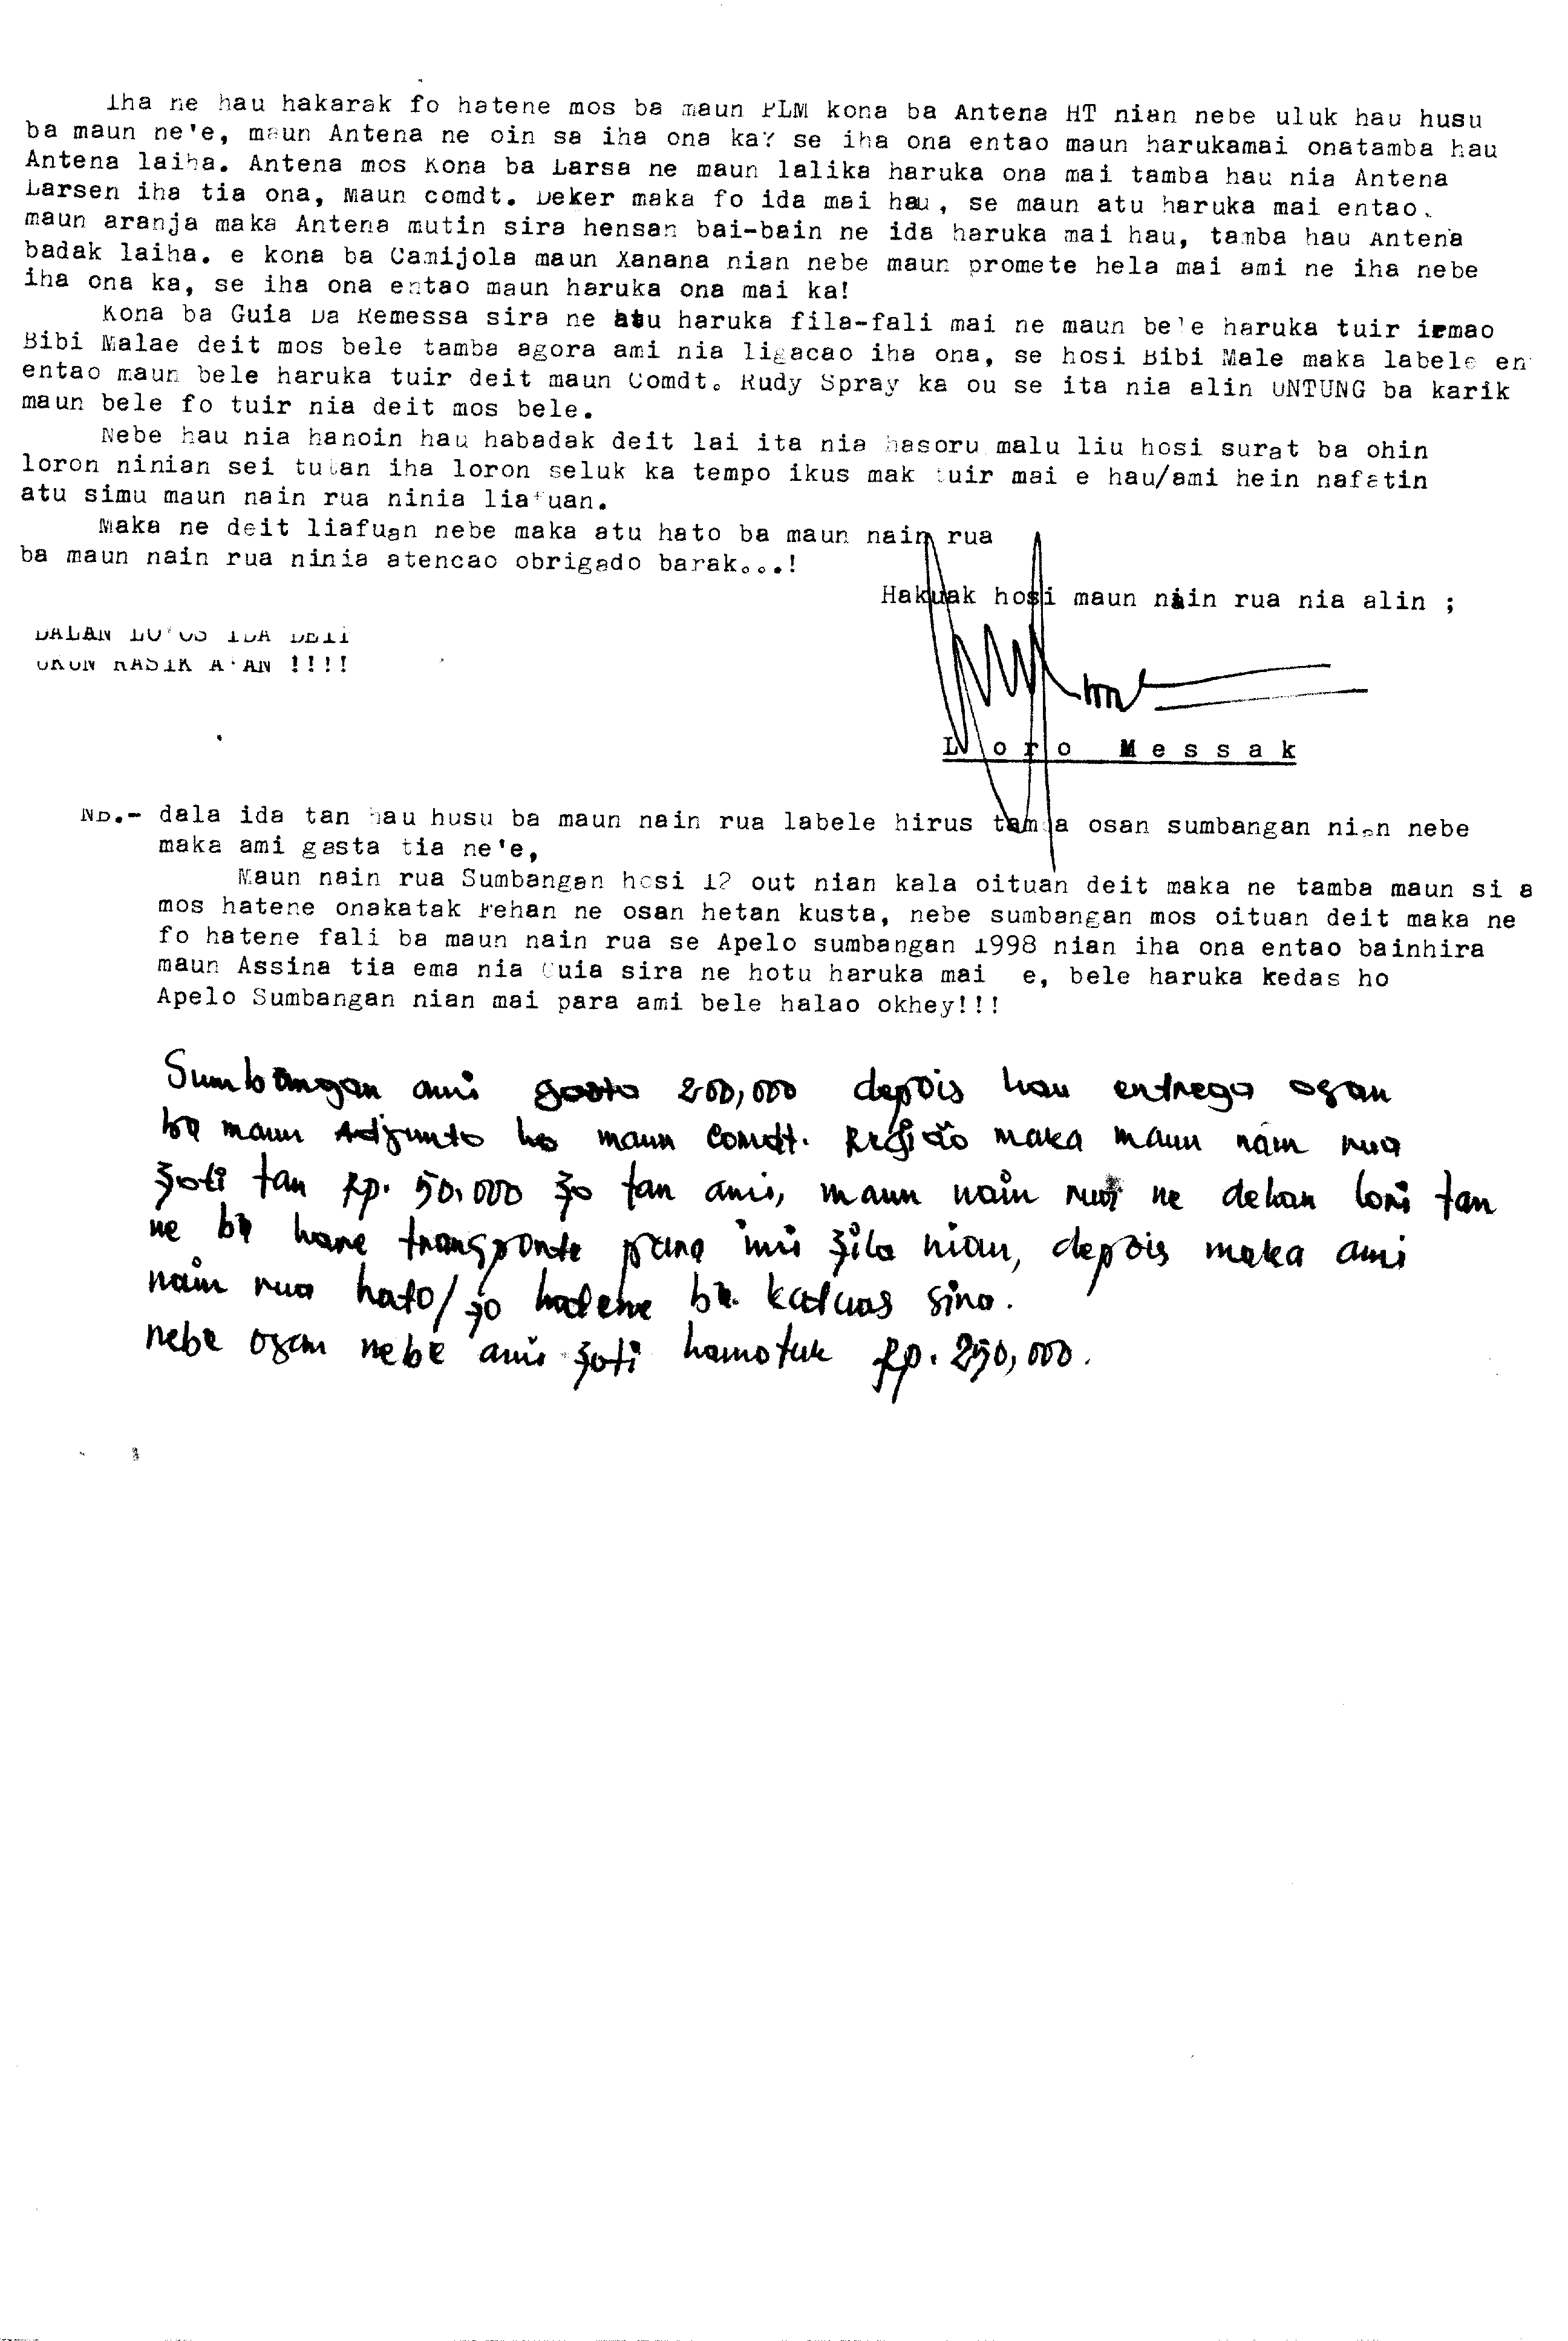 Iha ne hau hakarak fo hatene mos ba maun PLM kona ba Antena HT nian nebe uluk hau husu
ba maun ne'e, maun Antena ne oin sa iha ona ka? se iha ona entao maun harukamai onatamba hau
Antena laiha. Antena mos Kona ba Larsa ne maun lalika haruka ona mai tamba hau nia Antena
Larsen iha tia ona, Maun comdt. Deker maka fo ida mai hau, se maun atu haruka mai entao.
maun aranja maka Antena mutin sira hensan bai-bain ne ida haruka mai hau, tamba hau Antena
badak laiha. e kona ba Camijola maun Xanana nian nebe maun promete hela mai ami ne iha nebe
iha ona ka, se iha ona entao maun haruka ona mai ka!
Kona ba Guia Da Remessa sira ne atu haruka fila-fali mai ne maun be'e haruka tuir irmao
Bibi Malae deit mos bele tamba agora ami nia ligacao iha ona, se hosi Bibi Male maka labele en
entao maun bele haruka tuir deit maun Comdt. Rudy Spray ka ou se ita nia alin UNTUNG ba karik
maun bele fo tuir nia deit mos bele.
Nebe hau nia hanoin hau habadak deit lai ita nia hasoru malu liu hosi surat ba ohin
loron ninian sei tutan iha loron seluk ka tempo ikus mak tuir mai e hau/ami hein nafatin
atu simu maun nain rua ninia liafuan.
Maka ne deit liafuan nebe maka atu hato ba maun nain rua
ba maun nain rua ninia atencao obrigado barak...!
Hakuak hosi maun nain rua nia alin ;
DALAN LO'OS IDA DEIT
UKUN RASIK A'AN !!!!
Loro Messak
NB.- dala ida tan hau husu ba maun nain rua labele hirus tamba osan sumbangan nian nebe
maka ami gasta tia ne'e,
Maun nain rua Sumbangan hosi 12 out nian kala oituan deit maka ne tamba maun si a
mos hatene onakatak Rehan ne osan hetan kusta, nebe sumbangan mos oituan deit maka ne
fo hatene fali ba maun nain rua se Apelo sumbangan 1998 nian iha ona entao bainhira
maun Assina tia ema nia Guia sira ne hotu haruka mai e, bele haruka kedas ho
Apelo Sumbangan nian mai para ami bele halao okhey!!!
Sumbangan ami gasta 200,000 depois hau entrega osan
ba maun Adjunto ho maun Comdt. Região maka maun nain rua
foti tan Rp. 50.000 fo tan ami, maun nain rua ne dehan lori tan
ne ba hare transporte para imi fila nian, depois maka ami
nain rua hato/fo hatene ba katuas sira.
nebe osan nebe ami foti hamotuk Rp. 250,000.